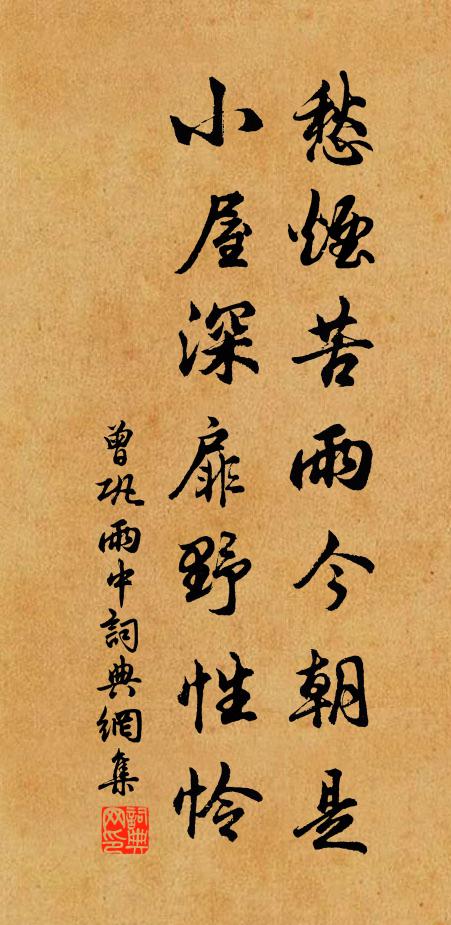 愁煙苦雨今朝是
小屋深扉野性怜
曾巩雨中詞典網集
詞典网印